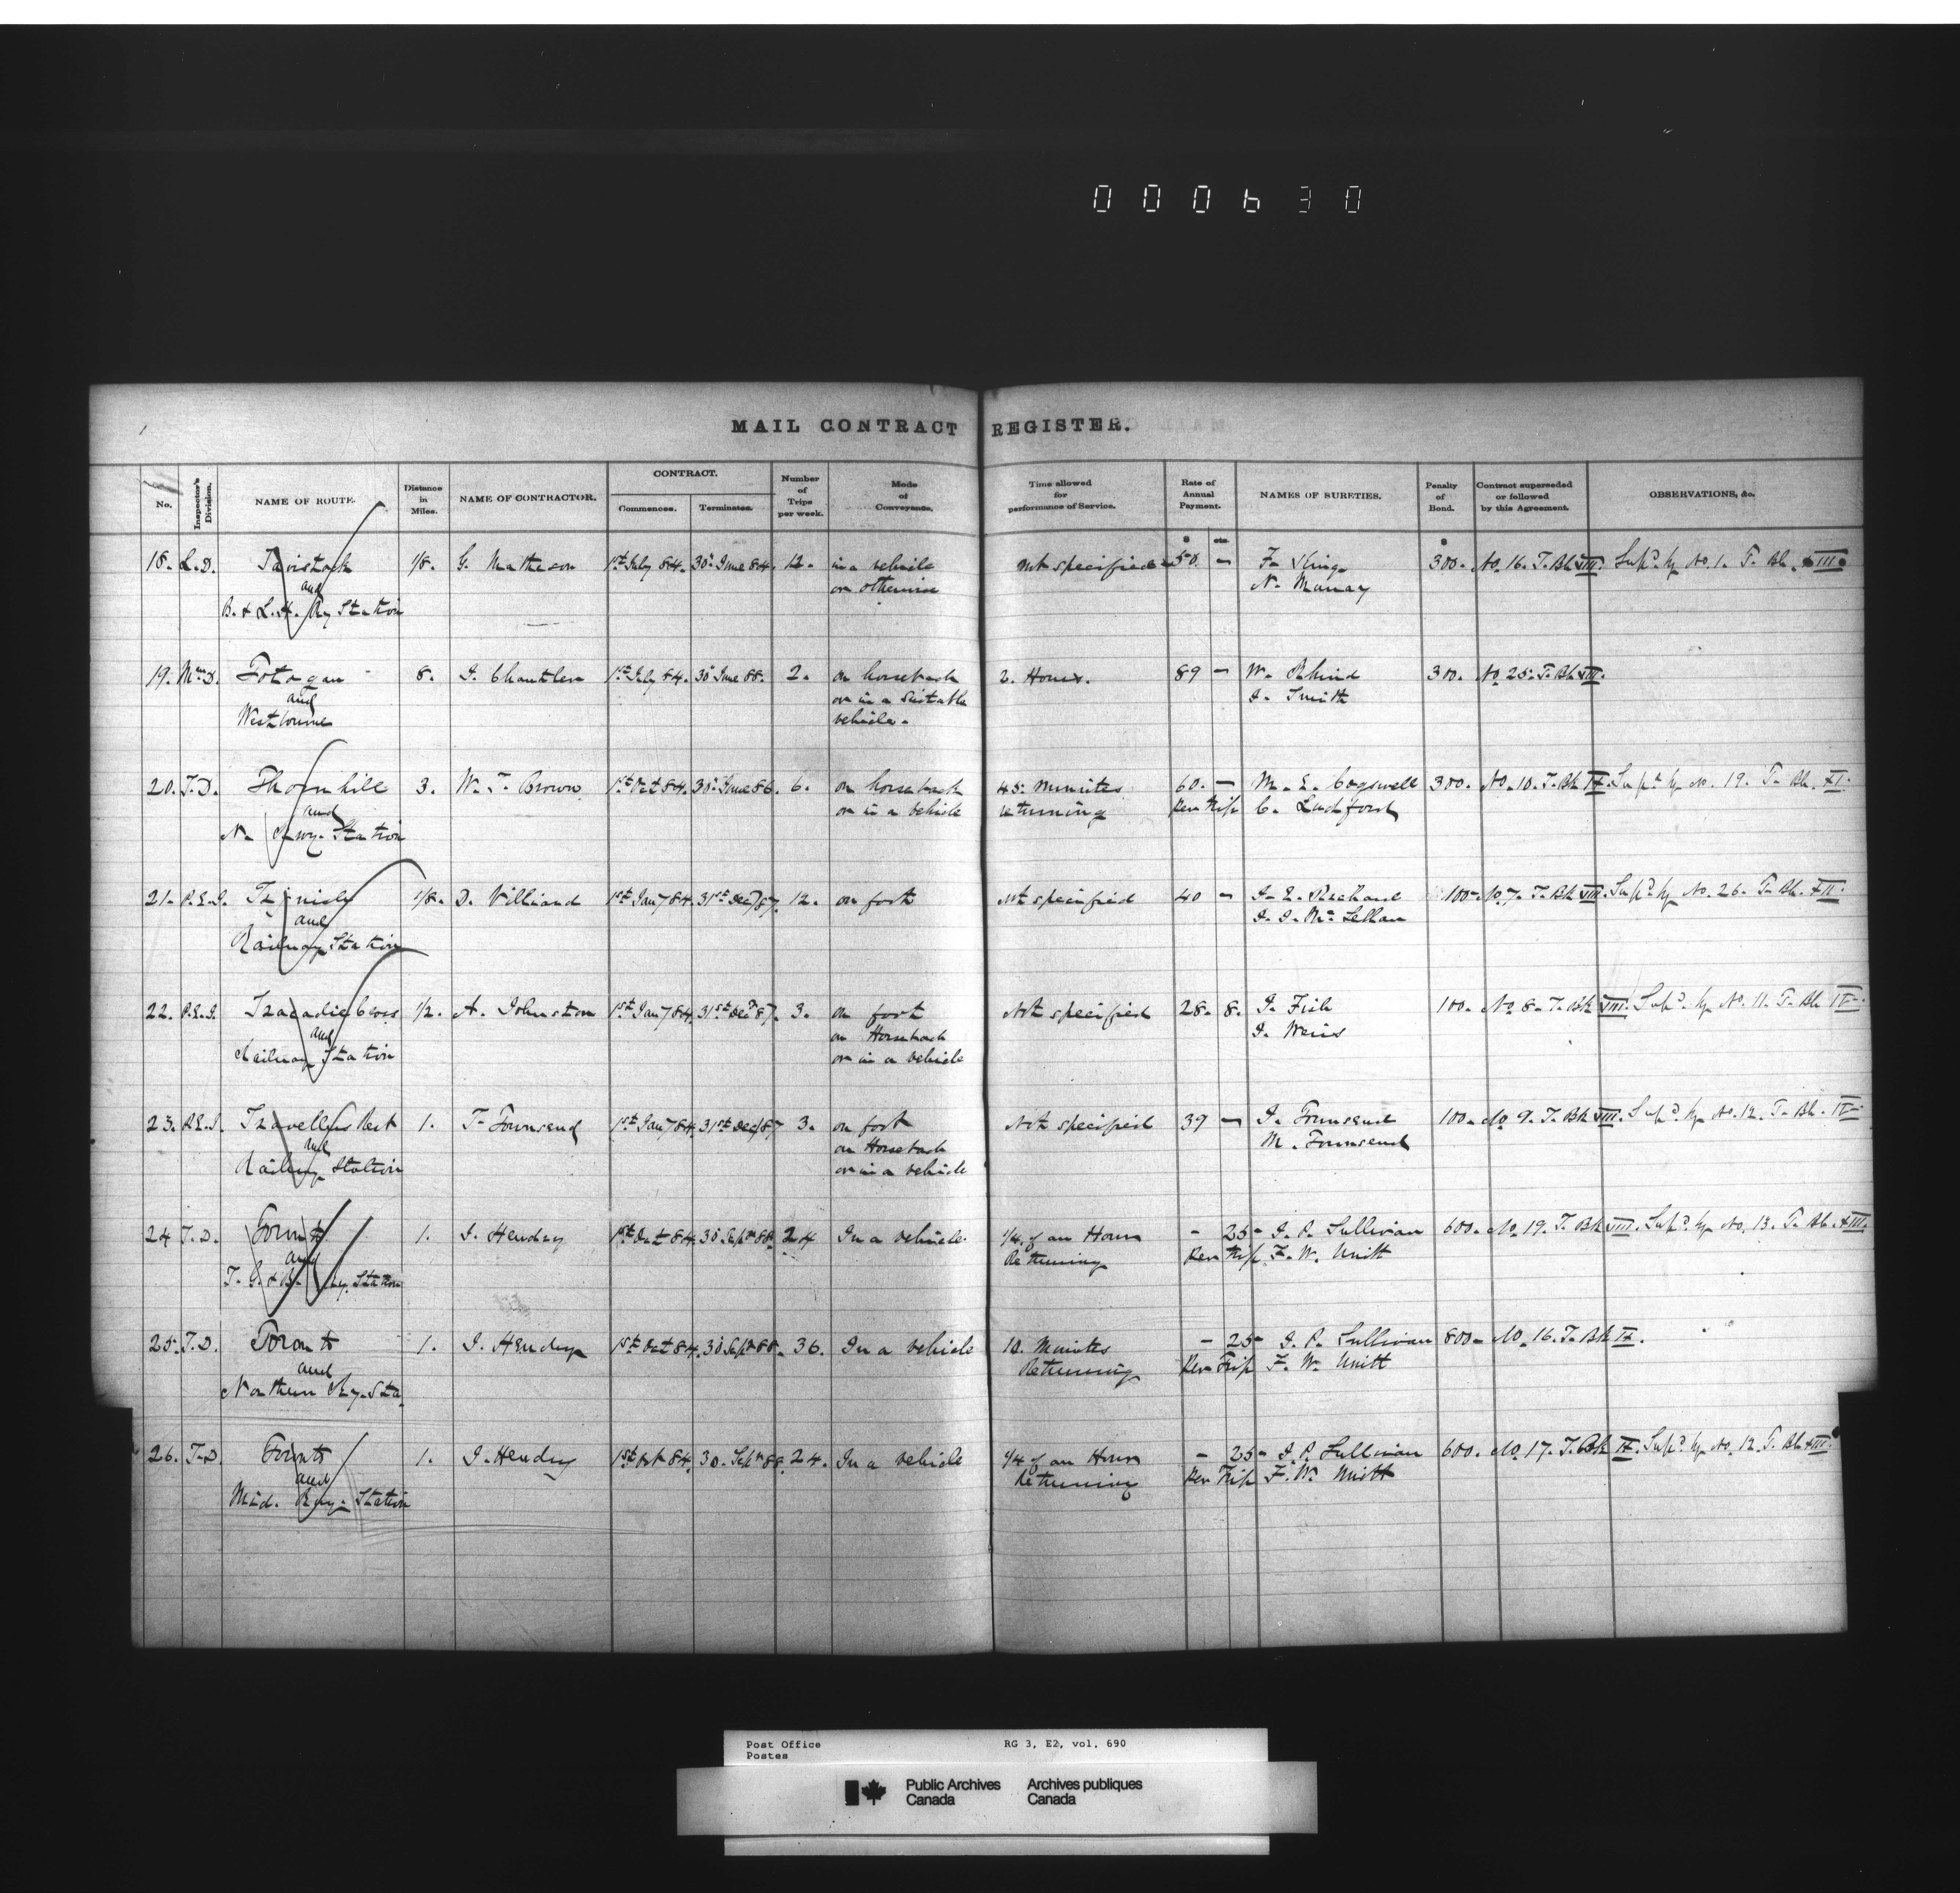 000630
MAIL CONTRACT REGISTER.
No. Inspector's Division. NAME OF ROUTE. Distance in Miles. NAME OF CONTRACTOR. CONTRACT. Commences. Terminates. Number of Trips per week. Mode of Conveyance. Time allowed for performance of Service. Rate of Annual Payment. NAMES OF SURETIES. Penalty of Bond. Contract superseded or followed by this Agreement. OBSERVATIONS, &c.
$ cts. $
18. L.D. Tavistock 1/8. G. Matheson 1st July 84. 30 June 84. 12. in a vehicle not specified 50 - F. King 300. No 16. T. Bk VIII. Supd. by No. 1. T. Bk.
and or otherwise N. Murray
B. & L. H. Ry Station
19. Totogan 8. J. Chantler 1st July 84. 30 June 88. 2. on horseback 2. Hours. 89 - W. 300. No 25. T. Bk VIII.
and or in a suitable J. Smith
Westbourne vehicle.
20. T.D. Thornhill 3. W. T. Brown 1st Oct 84. 30 June 86. 6. on horseback 45. minutes 60. - M. E. Cogswell 300. No. 10. T. Bk IX. Supd. by No. 19. T. Bk. XI.
and or in a vehicle returning Per Trip C. Ludford
N. Station
21. P.E.I. Tignish 1/8. D. 1st Jany 84. 31st Decr 87. 12. on foot Not specified 40 - 100. No 7. T. Bk VIII. Supd. by No. 26. T. Bk. XII.
and J. J. Mc Lellan
Railway Station
22. P.E.I. Tracadie Cross 1/2. A. Johnston 1st Jany 84. 31st Decr 87. 3. on foot Not specified 28. 8. J. 100. No 8. T. Bk VIII. Supd. by No. 11. T. Bk IX.
and on Horseback J. Weirs
Railway Station or in a vehicle
23. P.E.I. Travellers Rest 1. T. Townsend 1st Jany 84. 31st Decr 87 3. on foot Not specified 39 - J. Townsend 100. No 9. T. Bk VIII. Supd. by No. 12. T. Bk. IX.
and on Horseback M. Townsend
Railway Station or in a vehicle
24 T.D. Toronto 1. J. Hendry 1st Oct 84. 30 Septr 88. 24 In a vehicle 1/4 of an Hour - 25 J. P. Sullivan 600. No 19. T. Bk VIII. Supd. by No. 13. T. Bk. XIII.
and Returning Per Trip F. W. Unitt
T. G. & B. Ry. Station
25. T.D. Toronto 1. J. Hendry 1st Oct 84. 30 Septr 88. 36. In a vehicle 10. Minutes - 25 J. P. Sullivan 800. No. 16. T. Bk IX.
and Returning Per Trip F. W. Unitt
Northern Ry. Sta
26. T.D. Toronto 1. J. Hendry 1st Oct 84. 30. Septr 88. 24. In a vehicle 1/4 of an Hour - 25 J. P. Sullivan 600. No 17. T. Bk IX. Supd. by No. 12. T. Bk XIII.
and Returning Per Trip F. W. Unitt
Mid. Ry. Station
Post Office RG 3, E2, vol. 690
Postes
Public Archives Archives publiques
Canada Canada